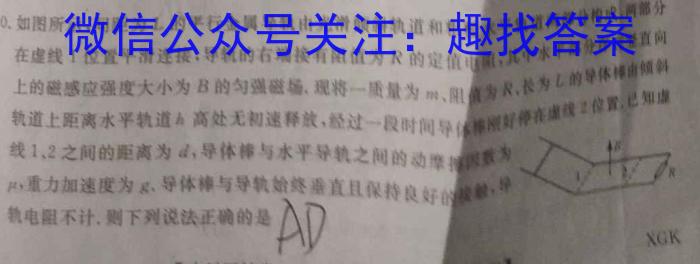 微信公众号关注：趣找答案
0.如图所
在虚线1位置平滑连接，导轨的右端接有阻值为R的定值电阻，其中水平 竖直向
上的磁感应强度大小为B的匀强磁场，现将一质量为m、阻值为R、长为L的导体棒由倾斜
轨道上距离水平轨道h高处无初速释放，经过一段时间导体棒刚好停在虚线2位置，已知虚
线1、2之间的距离为d，导体棒与水平导轨之间的动摩擦因数为
μ，重力加速度为g，导体棒与导轨始终垂直且保持良好的接触，导
轨电阻不计，则下列说法正确的是 AD
B
1
2
R
XGK